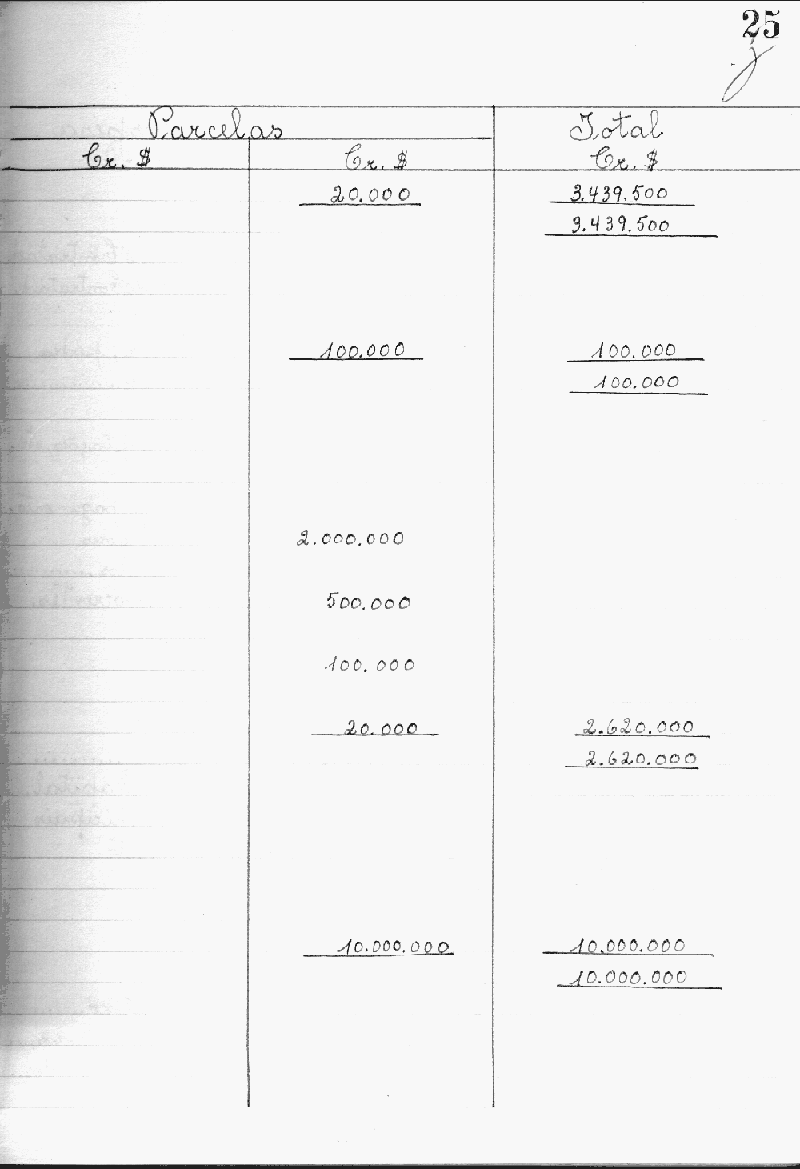 25
Parcelas Total
Cr. $ Cr. $ Cr. $
20.000 3.439.500
3.439.500
100.000 100.000
100.000
2.000.000
500.000
100.000
20.000 2.620.000
2.620.000
10.000.000 10.000.000
10.000.000